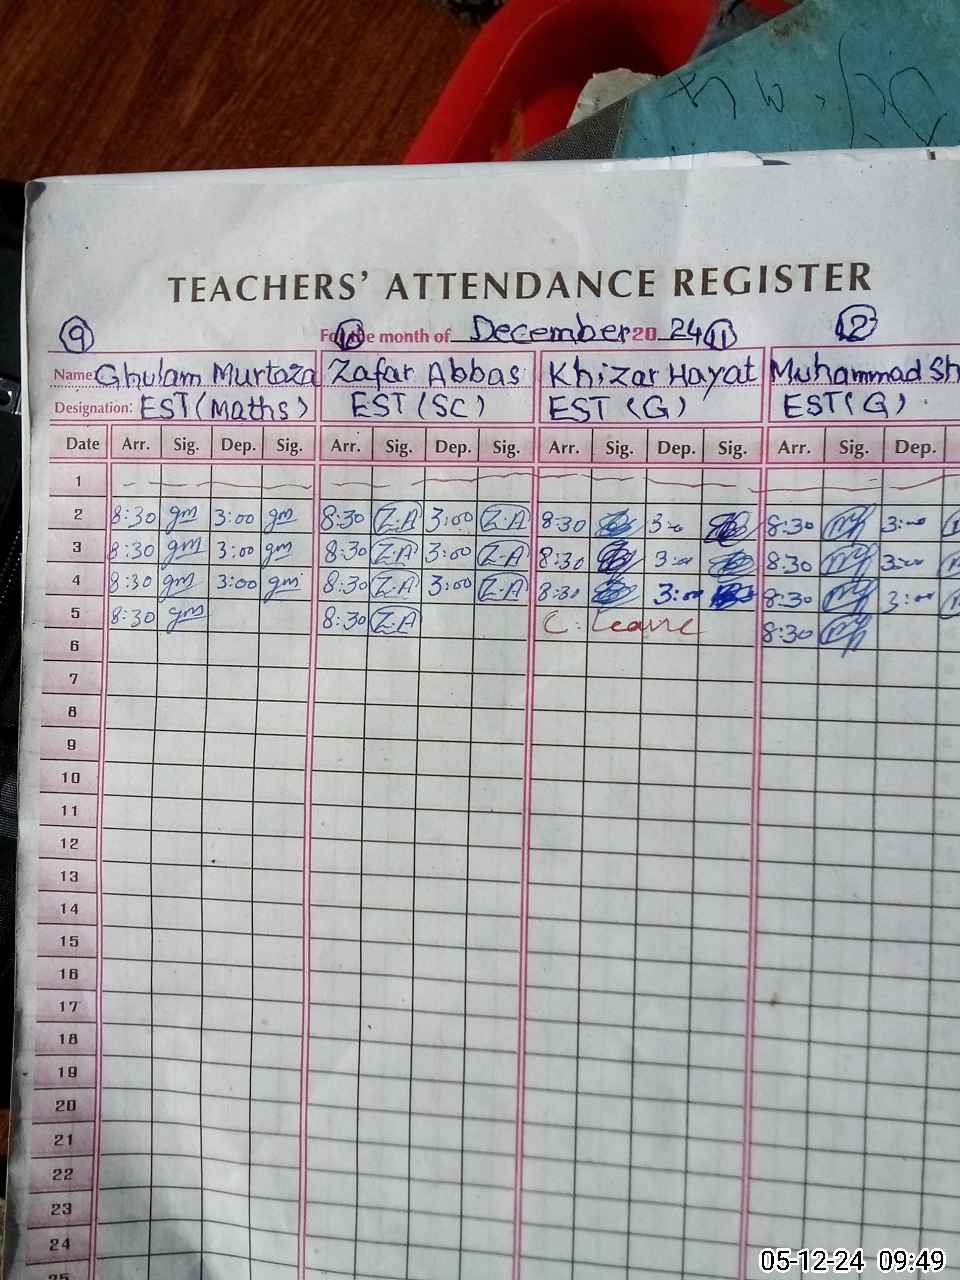 TEACHERS' ATTENDANCE REGISTER
9 10 11 12
For the month of December 20 24
Name: Ghulam Murtaza Zafar Abbas Khizar Hayat Muhammad Sh
Designation: EST (Maths) EST (SC) EST (G) EST (G)
Date Arr. Sig. Dep. Sig. Arr. Sig. Dep. Sig. Arr. Sig. Dep. Sig. Arr. Sig. Dep.
1
2 8:30 gm 3:00 gm 8:30 Z.A 3:00 Z.A 8:30 3:00 8:30 3:00
3 8:30 gm 3:00 gm 8:30 Z.A 3:00 Z.A 8:30 3:00 8:30 3:00
4 8:30 gm 3:00 gm 8:30 Z.A 3:00 Z.A 8:30 3:00 8:30 3:00
5 8:30 gm 8:30 Z.A C. Leave 8:30
6
7
8
9
10
11
12
13
14
15
16
17
18
19
20
21
22
23
24
25
05-12-24 09:49